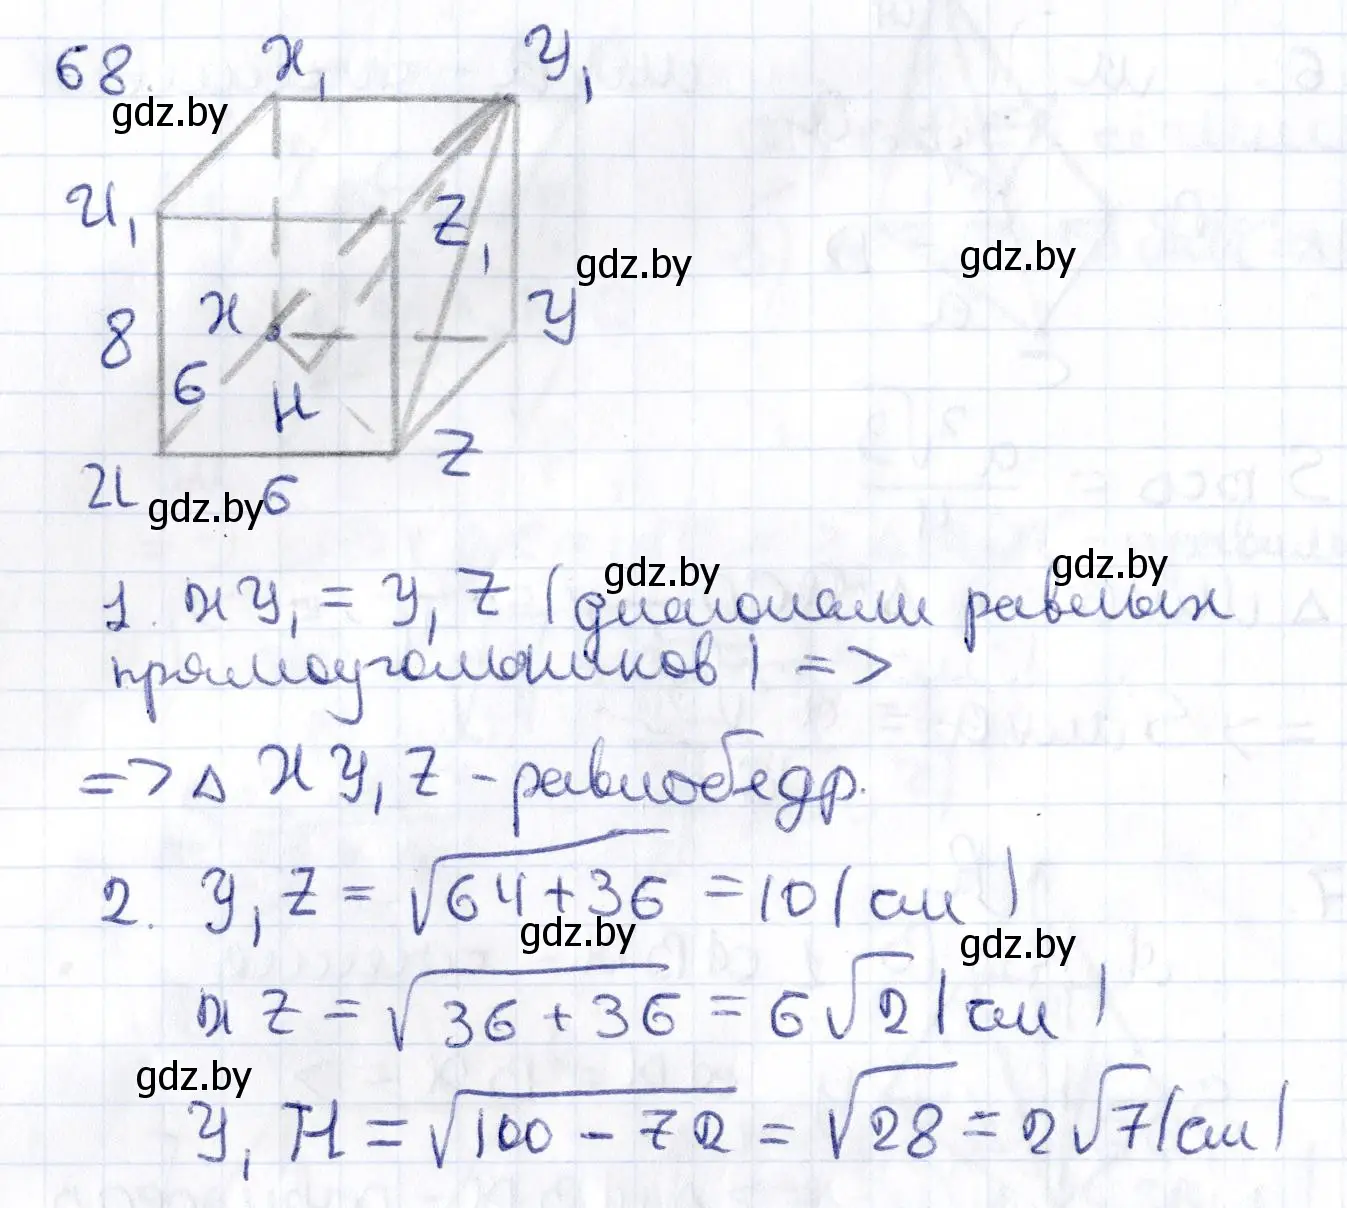 68.
x₁ y₁
gdz.by
u₁ z₁
gdz.by gdz.by
x y
8
6 H
z
u gdz.by 6
gdz.by gdz.by
1. xy₁ = y₁z (диагонали равных
прямоугольников) =>
=> △ xy₁z - равнобедр.
2. y₁z = √64+36 = 10 (см)
gdz.by gdz.by
xz = √36+36 = 6√2 (см)
gdz.by
y₁H = √100-72 = √28 = 2√7 (см)